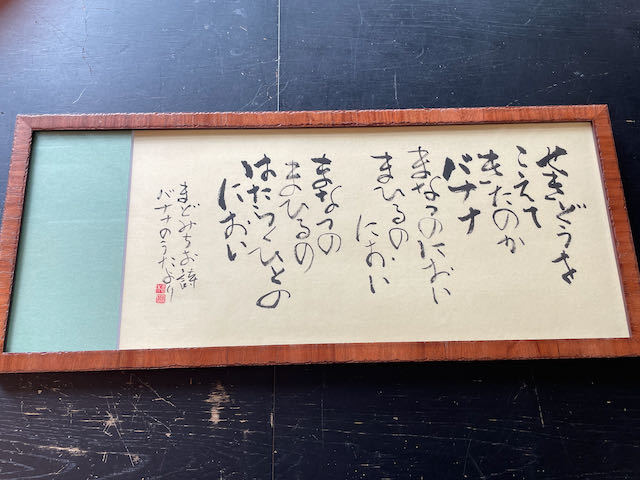 せきどうを
こえて
きたのか
バナナ
まなつのにおい
まひるの
におい
まなつの
まひるの
はたらくひとの
におい
まどみちお詩
バナナのうたより